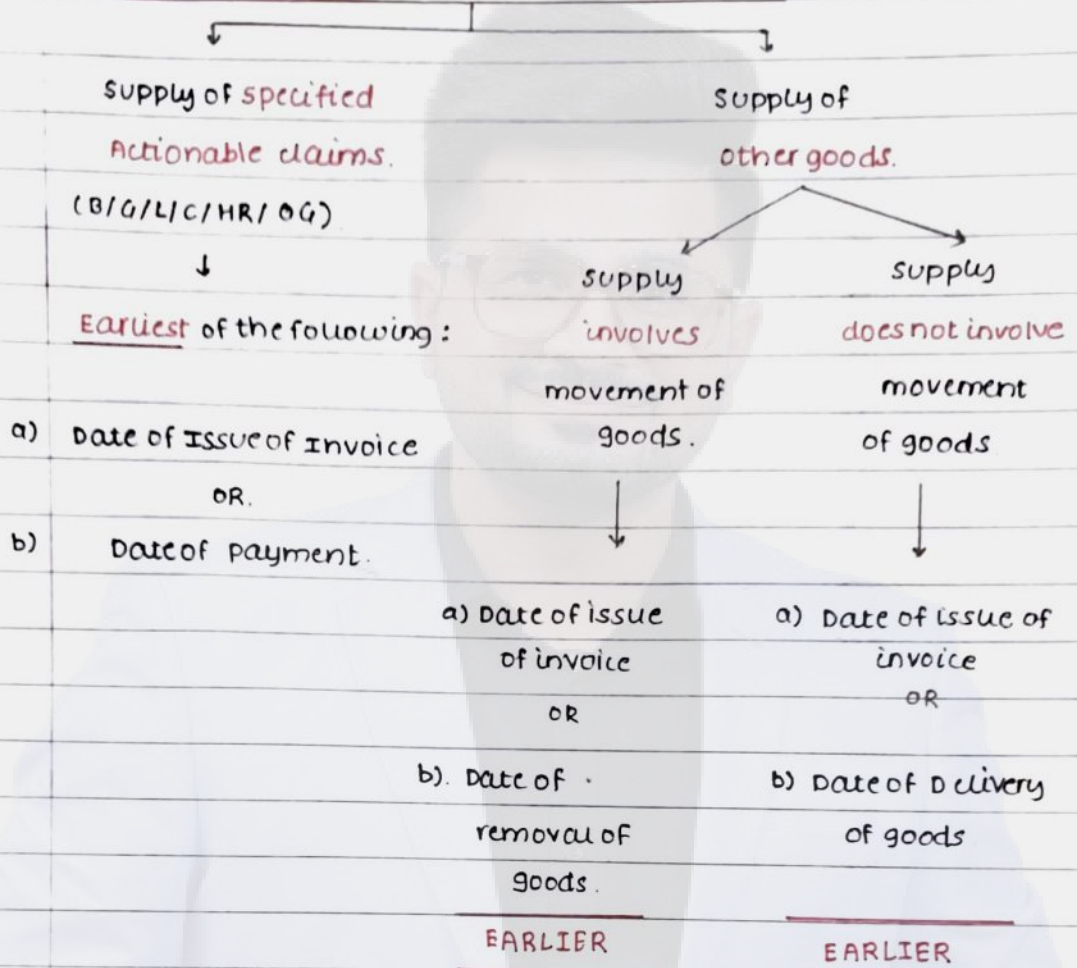 Supply of specified
Actionable claims.
(B/G/L/C/HR/OG)
Earliest of the following:
a) Date of Issue of Invoice
OR.
b) Date of payment.
Supply of
other goods.
supply
involves
movement of
goods.
a) Date of issue
of invoice
OR
b). Date of
removal of
goods.
EARLIER
supply
does not involve
movement
of goods
a) Date of issue of
invoice
OR
b) Date of Delivery
of goods
EARLIER